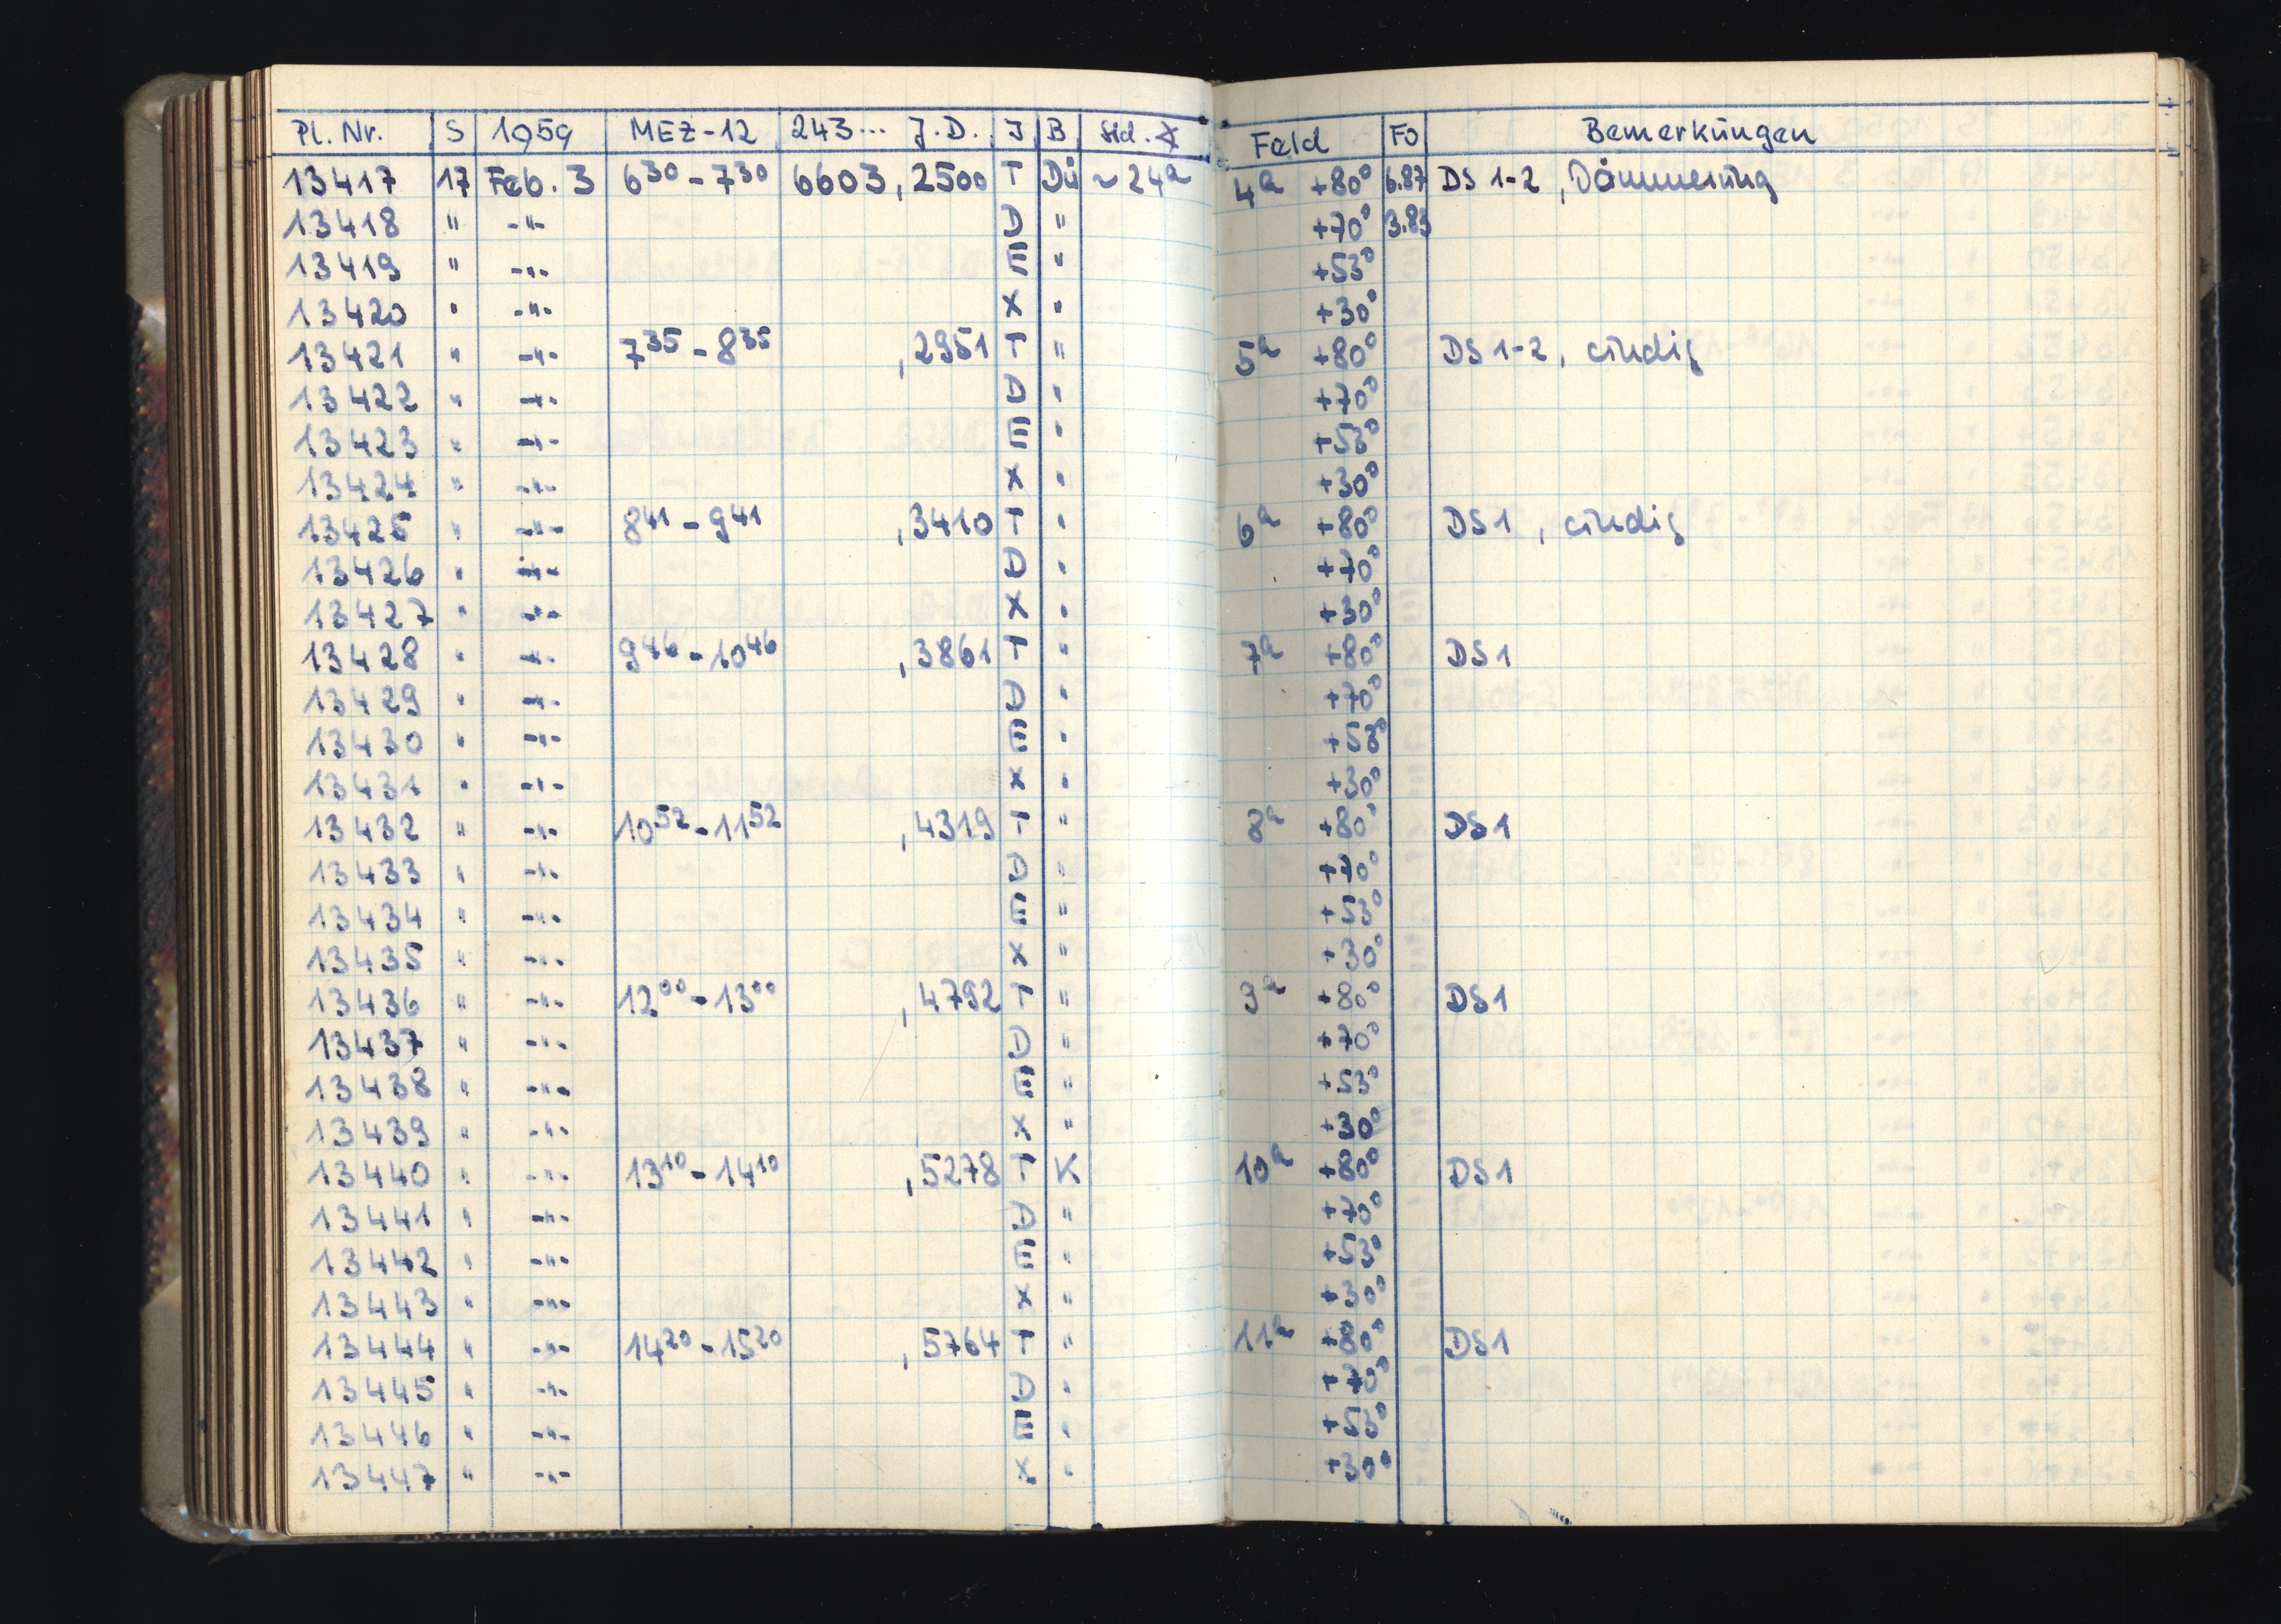 Pl. Nr. S 1959 MEZ-12 243... J.D. J B Std. ∡ Feld FO Bemerkungen
13417 17 Feb. 3 6³⁰ - 7³⁰ 6603,2500 T Dü ~24ᵃ 4ᵃ +80° 6.87 DS 1-2, Dämmerung
13418 " -"- D " +70° 3.83
13419 " -"- E " +53°
13420 " -"- X " +30°
13421 " -"- 7³⁵ - 8³⁵ ,2951 T " 5ᵃ +80° DS 1-2, windig
13422 " -"- D " +70°
13423 " -"- E " +53°
13424 " -"- X " +30°
13425 " -"- 8⁴¹ - 9⁴¹ ,3410 T " 6ᵃ +80° DS 1, windig
13426 " -"- D " +70°
13427 " -"- X " +30°
13428 " -"- 9⁴⁶ - 10⁴⁶ ,3861 T " 7ᵃ +80° DS 1
13429 " -"- D " +70°
13430 " -"- E " +53°
13431 " -"- X " +30°
13432 " -"- 10⁵² - 11⁵² ,4319 T " 8ᵃ +80° DS 1
13433 " -"- D " +70°
13434 " -"- E " +53°
13435 " -"- X " +30°
13436 " -"- 12⁰⁰ - 13⁰⁰ ,4792 T " 9ᵃ +80° DS 1
13437 " -"- D " +70°
13438 " -"- E " +53°
13439 " -"- X " +30°
13440 " -"- 13¹⁰ - 14¹⁰ ,5278 T K 10ᵃ +80° DS 1
13441 " -"- D " +70°
13442 " -"- E " +53°
13443 " -"- X " +30°
13444 " -"- 14²⁰ - 15²⁰ ,5764 T " 11ᵃ +80° DS 1
13445 " -"- D " +70°
13446 " -"- E " +53°
13447 " -"- X " +30°